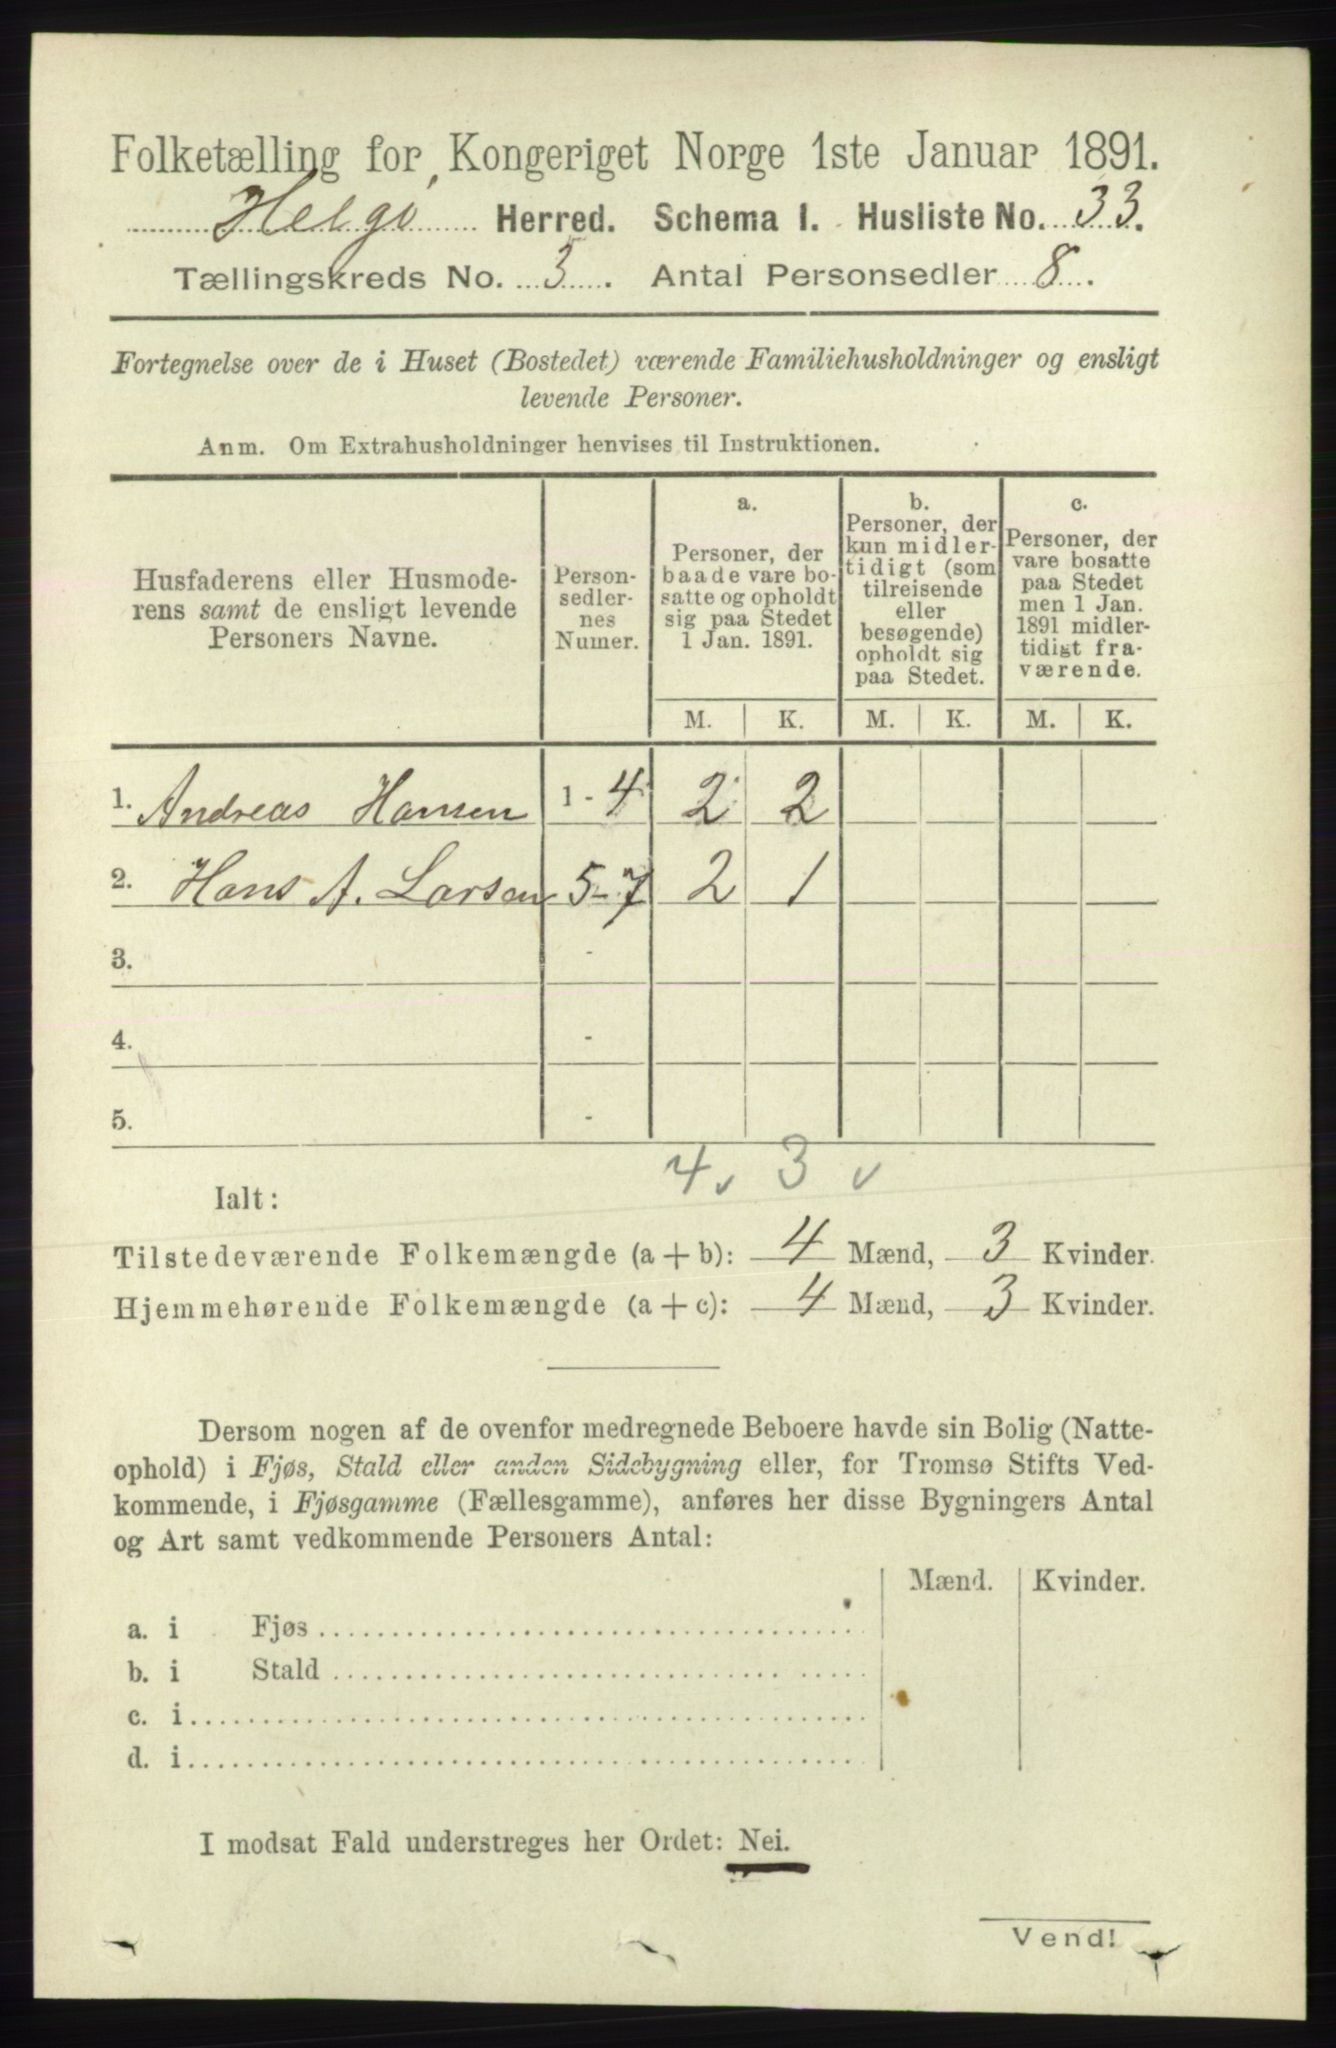 Folketælling for Kongeriget Norge 1ste Januar 1891.
Helgø Herred. Schema I. Husliste No. 33.
Tællingskreds No. 3. Antal Personsedler 8.
Fortegnelse over de i Huset (Bostedet) værende Familiehusholdninger og ensligt
levende Personer.
Anm. Om Extrahusholdninger henvises til Instruktionen.
Husfaderens eller Husmode-
rens samt de ensligt levende
Personers Navne.
Person-
sedler-
nes
Numer.
a.
Personer, der
baade vare bo-
satte og opholdt
sig paa Stedet
1 Jan. 1891.
b.
Personer, der
kun midler-
tidigt (som
tilreisende
eller
besøgende)
opholdt sig
paa Stedet.
c.
Personer, der
vare bosatte
paa Stedet
men 1 Jan.
1891 midler-
tidigt fra-
værende.
M. K. M. K. M. K.
1. Andreas Hansen 1 - 4 2 2
2. Hans A. Larsen 5 - 7 2 1
3. -
4. -
5. -
4 v 3 v
Ialt:
Tilstedeværende Folkemængde (a + b): 4 Mænd, 3 Kvinder.
Hjemmehørende Folkemængde (a + c): 4 Mænd, 3 Kvinder.
Dersom nogen af de ovenfor medregnede Beboere havde sin Bolig (Natte-
ophold) i Fjøs, Stald eller anden Sidebygning eller, for Tromsø Stifts Ved-
kommende, i Fjøsgamme (Fællesgamme), anføres her disse Bygningers Antal
og Art samt vedkommende Personers Antal:
Mænd. Kvinder.
a. i Fjøs
b. i Stald
c. i
d. i
I modsat Fald understreges her Ordet: Nei.
Vend!